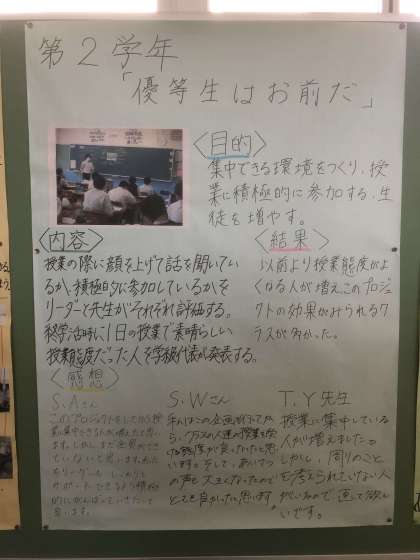 第2学年
「優等生はお前だ」
〈目的〉
集中できる環境をつくり、授
業に積極的に参加する、生
徒を増やす。
〈内容〉
授業の際に顔を上げて話を聞いてい
るか、積極的に参加しているかを
リーダーと先生がそれぞれ評価する。
終学活時に1日の授業で素晴らしい
授業態度だった人を学級代表が発表する。
〈結果〉
以前より授業態度がよ
くなる人が増え、このプロジェ
クトの効果がみられるク
ラスが多かった。
〈感想〉
S.Aさん
このプロジェクトをしてから授
業に集中できる人が増えたと思い
ます。しかし、まだ全員ができ
ていないと思います。
リーダーが、しっかりと
サポートできるよう積極
的にがんばっていきたいと
思います。
S.Wさん
私はこの企画が
クラスの人達の授業を受
ける態度が良かったと思
います。そして、あいさつ
の声も大きくなったので
とても良かったと思います。
T.Y先生
授業に集中している
人が増えました。
しかし、周りのこと
を考えられていない人
がいるので、直して欲し
いです。